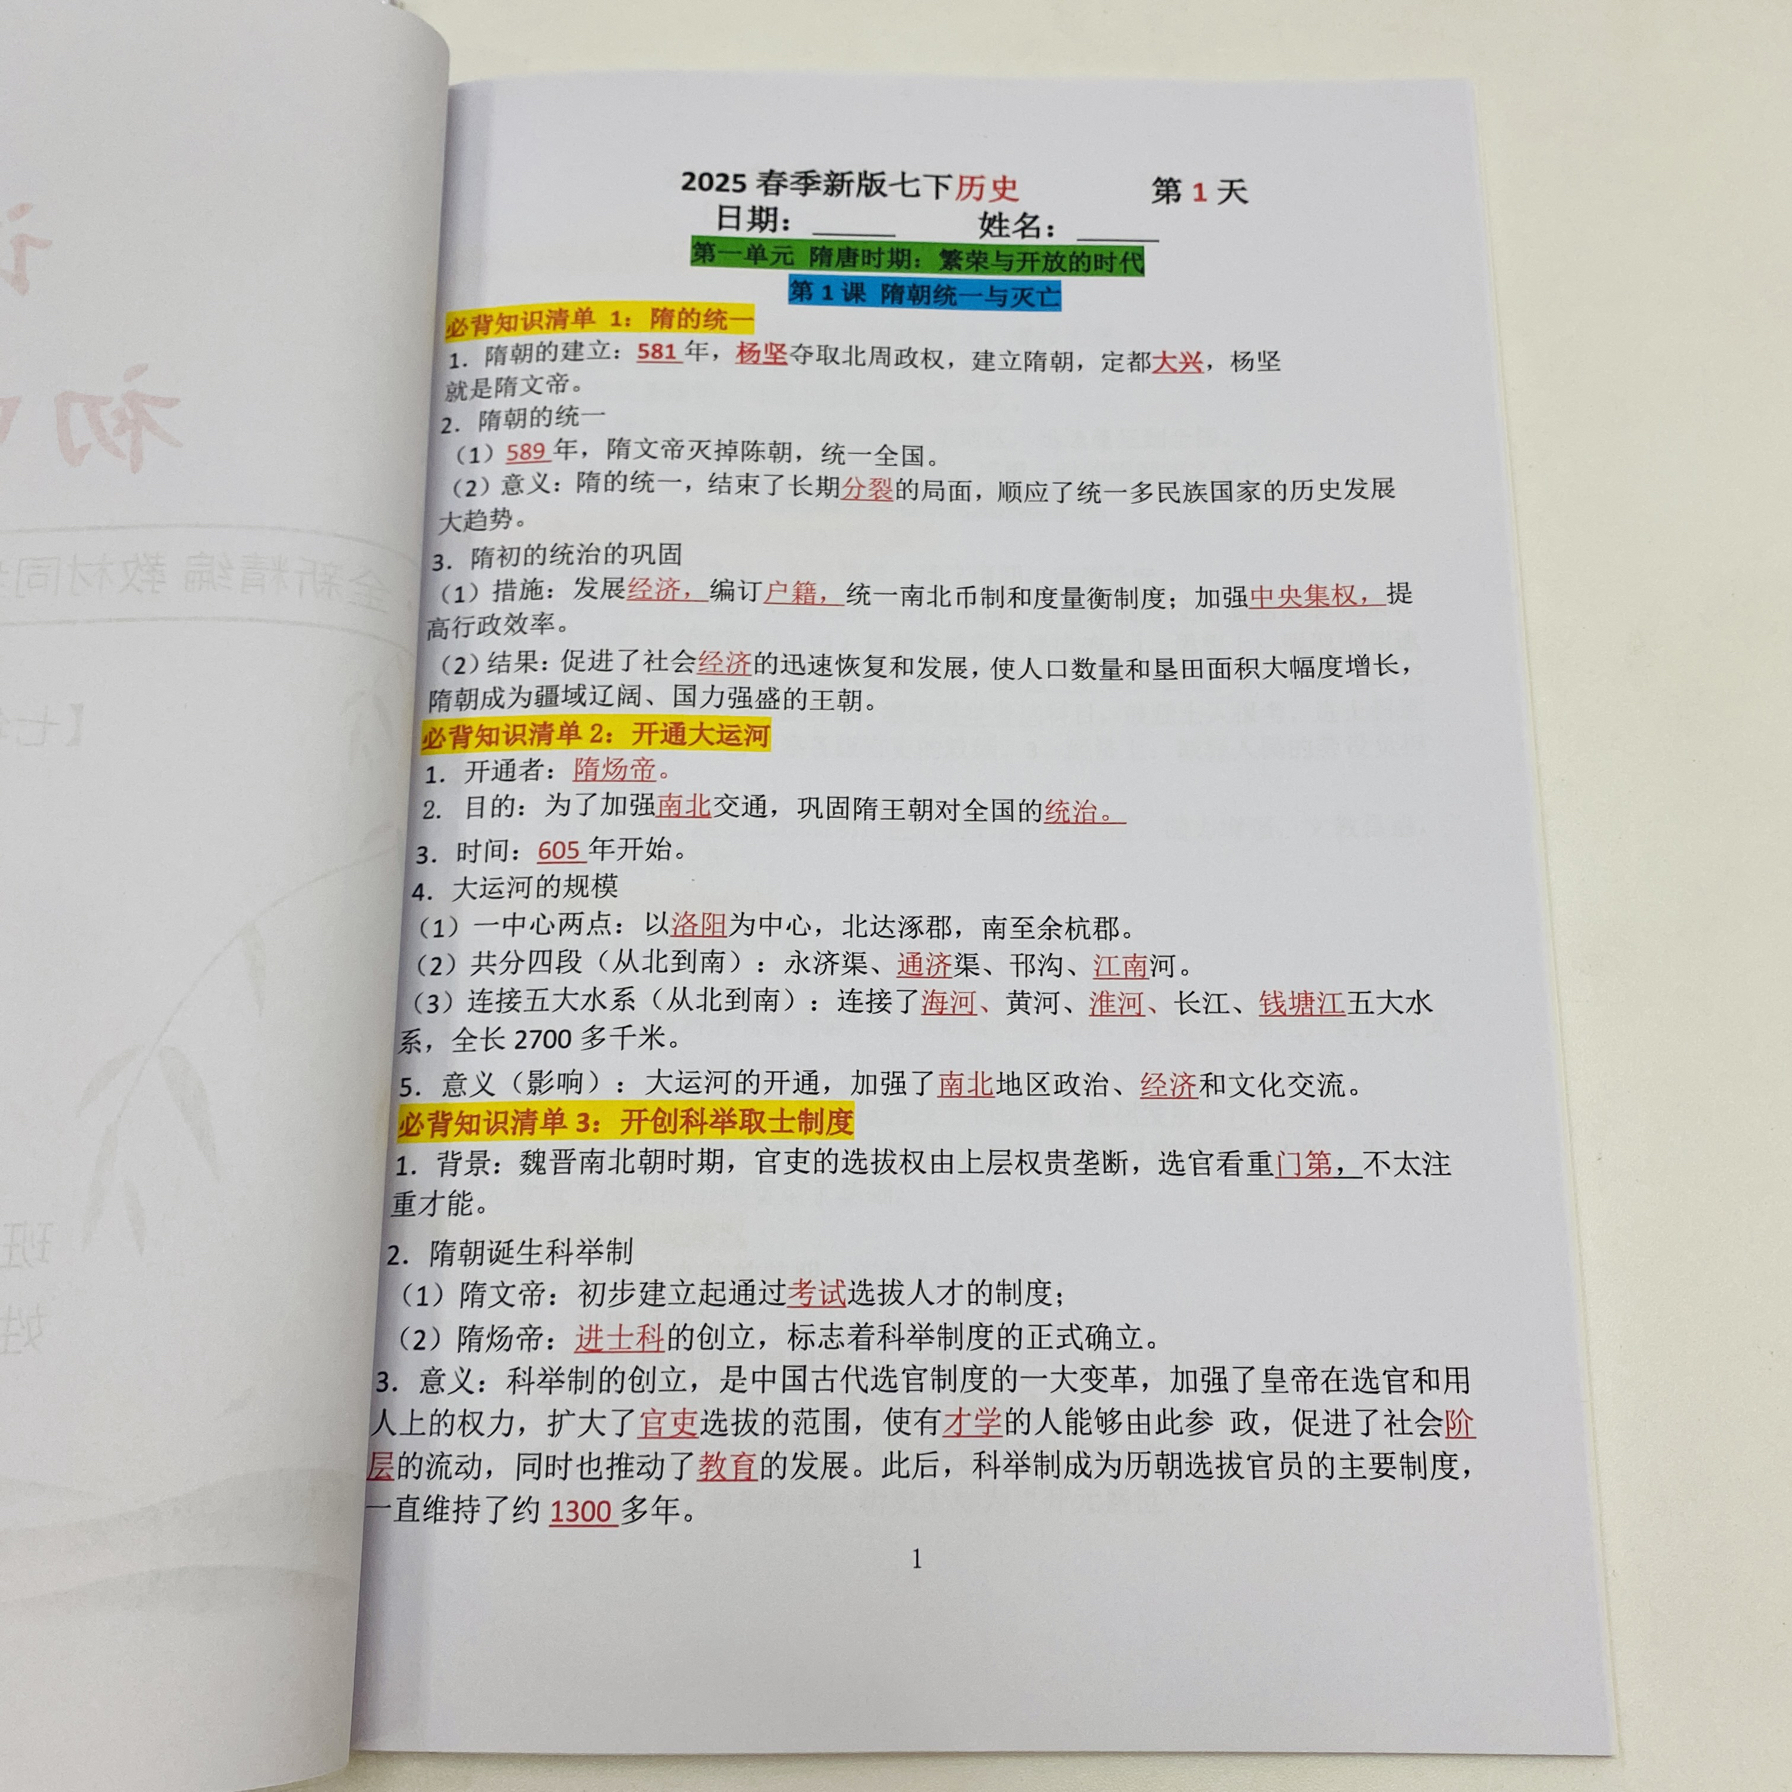 2025 春季新版七下历史 第 1 天
日期：_____ 姓名：_____
第一单元 隋唐时期：繁荣与开放的时代
第 1 课 隋朝统一与灭亡
必背知识清单 1：隋的统一
1．隋朝的建立：581 年，杨坚夺取北周政权，建立隋朝，定都大兴，杨坚
就是隋文帝。
2．隋朝的统一
（1）589 年，隋文帝灭掉陈朝，统一全国。
（2）意义：隋的统一，结束了长期分裂的局面，顺应了统一多民族国家的历史发展
大趋势。
3．隋初的统治的巩固
（1）措施：发展经济，编订户籍，统一南北币制和度量衡制度；加强中央集权，提
高行政效率。
（2）结果：促进了社会经济的迅速恢复和发展，使人口数量和垦田面积大幅度增长，
隋朝成为疆域辽阔、国力强盛的王朝。
必背知识清单 2：开通大运河
1．开通者：隋炀帝。
2．目的：为了加强南北交通，巩固隋王朝对全国的统治。
3．时间：605 年开始。
4．大运河的规模
（1）一中心两点：以洛阳为中心，北达涿郡，南至余杭郡。
（2）共分四段（从北到南）：永济渠、通济渠、邗沟、江南河。
（3）连接五大水系（从北到南）：连接了海河、黄河、淮河、长江、钱塘江五大水
系，全长 2700 多千米。
5．意义（影响）：大运河的开通，加强了南北地区政治、经济和文化交流。
必背知识清单 3：开创科举取士制度
1．背景：魏晋南北朝时期，官吏的选拔权由上层权贵垄断，选官看重门第，不太注
重才能。
2．隋朝诞生科举制
（1）隋文帝：初步建立起通过考试选拔人才的制度；
（2）隋炀帝：进士科的创立，标志着科举制度的正式确立。
3．意义：科举制的创立，是中国古代选官制度的一大变革，加强了皇帝在选官和用
人上的权力，扩大了官吏选拔的范围，使有才学的人能够由此参 政，促进了社会阶
层的流动，同时也推动了教育的发展。此后，科举制成为历朝选拔官员的主要制度，
一直维持了约 1300 多年。
1